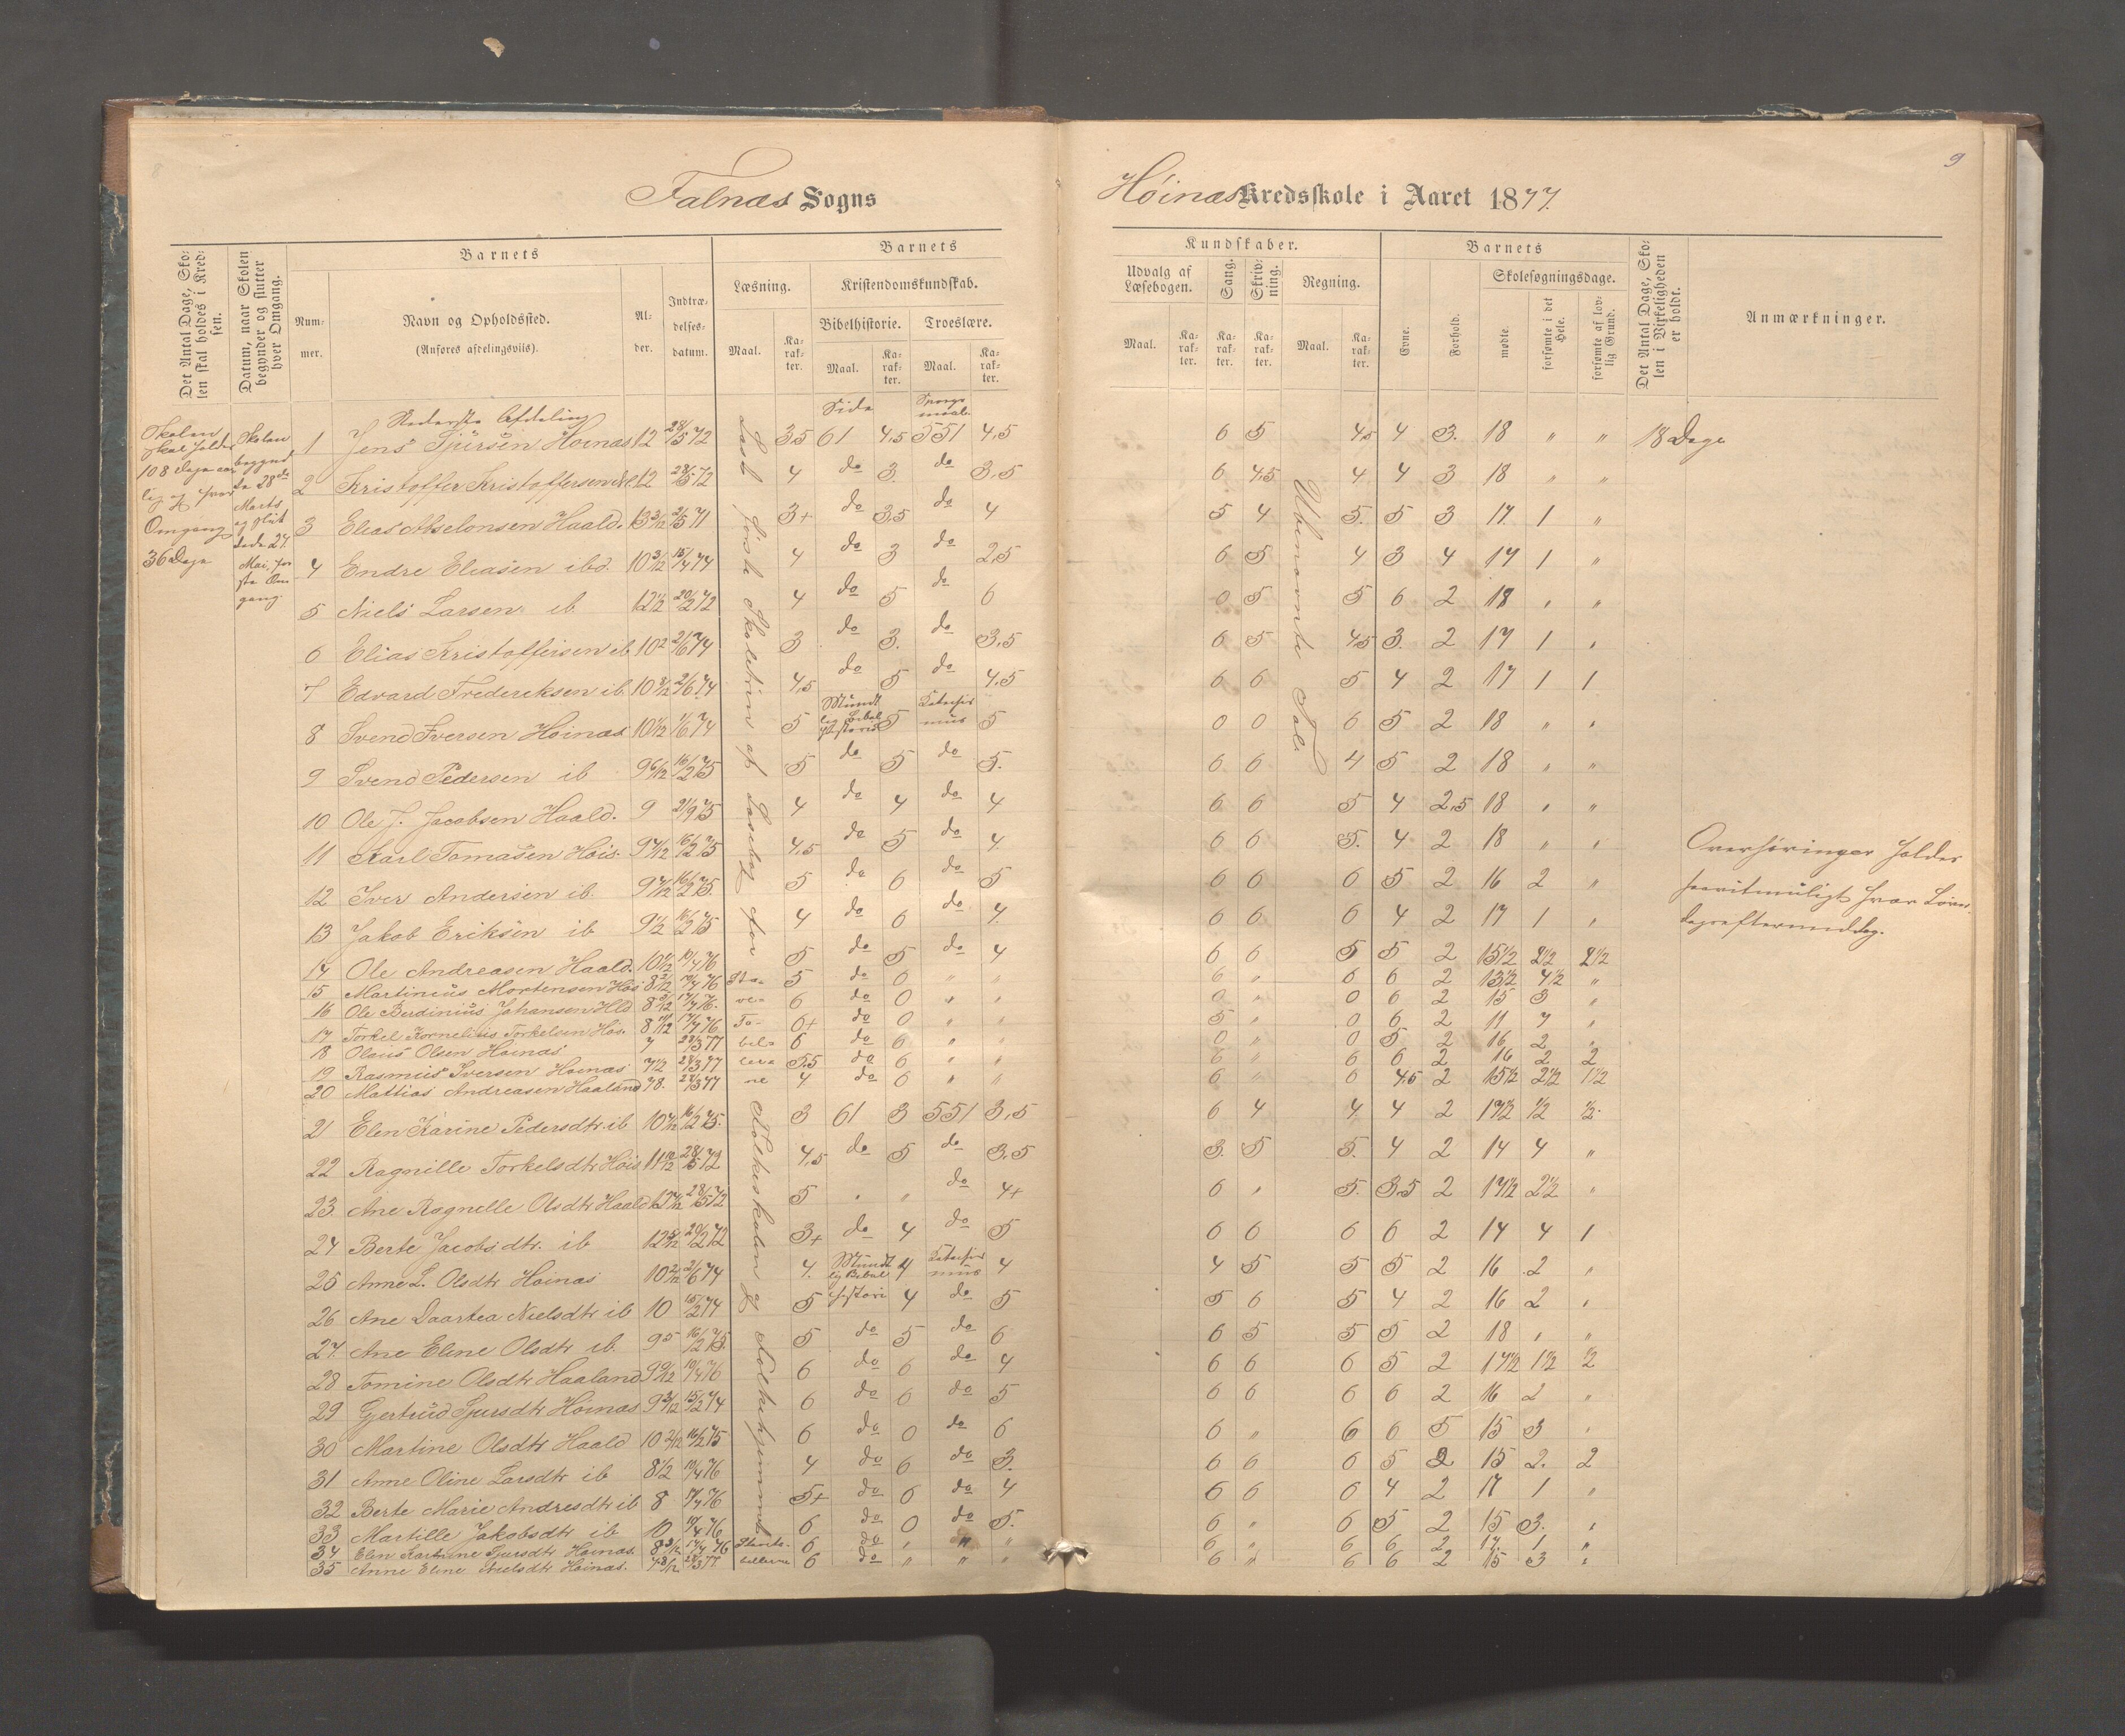 8
9
Falnæs Sogns
Høinæs Kredsskole i Aaret 1877.
Det Antal Dage, Skolen skal holdes i Kredsen.
Datum, naar Skolen begynder og slutter hver Omgang.
Barnets
Nummer.
Navn og Opholdssted.
(Anføres afdelingsviis).
Alder.
Indtrædelsesdatum.
Barnets
Læsning.
Kristendomskundskab.
Bibelhistorie.
Troeslære.
Maal.
Karakter.
Maal.
Karakter.
Maal.
Karakter.
Kundskaber.
Udvalg af Læsebogen.
Sang.
Skrivning.
Regning.
Maal.
Karakter.
Karakter.
Karakter.
Maal.
Karakter.
Barnets
Evne.
Forhold.
Skolesøgningsdage.
mødte.
forsømte i det Hele.
forsømte af lovlig Grund.
Det Antal Dage, Skolen i Virkeligheden er holdt.
Anmærkninger.
Skolen skal holdes 108 Dage aarlig og hver Omgang 36 Dage
Skolen begyndte 28de Marts og sluttede 27. Mai, første Omgang.
Læsb. første Skoletrin af Læsebog for Folkeskolen og Folkehjemmet
Ubenævnte Tal
Nederste Afdeling
Side
Spørgsmaal
1 Jens Sjursen Høinæs 12 28/5 72 3,5 61 4,5 551 4,5 6 5 4,5 4 3. 18 " " 18 Dage
2 Kristoffer Kristoffersen 12 28/5 72 4 do 3. do 3,5 6 4,5 4 4 3 18 " "
3 Elias Abselonsen Haald. 13 3/12 2/5 71 3+ do 3,5 do 4 5 4 5. 5 3 17 1 "
4 Endre Eliasen ibd. 10 3/12 15/4 74 4 do 3 do 2,5 6 5 4 3 4 17 1 "
5 Niels Larsen ib 12 1/2 20/2 72 4 do 5 do 6 0 5 5 6 2 18 " "
6 Elias Kristoffersen ib 10 2 2/6 74 3 do 3. do 3,5 6 5 4,5 3. 2 17 1 "
7 Edvard Frederiksen ib 10 2/12 2/6 74 4,5 do 5 do 4,5 6 6 5 4 2 17 1 1
8 Svend Iversen Høinæs 10 1/2 1/6 74 5 Mundtlig Bibelhistorie 5 Katechismus 5 0 0 6 5 2 18 " "
9 Svend Pedersen ib 9 6/12 16/2 75 5 do 5 do 5. 6 6 4 5 2 18 " "
10 Ole J. Jacobsen Haald. 9 21/9 75 4 do 4 do 4 6 6 5 4 2,5 18 " "
11 Karl Tomasen Høis. 9 7/12 16/2 75 4,5 do 5 do 4 6 6 5. 4 2 18 " "
12 Iver Andersen ib. 9 7/12 16/2 75. 5 do 6 do 5 6 6 6 5 2 16 2 "
13 Jakob Eriksen ib 9 1/2 16/2 75 4 do 6 do 4 6 6 6 4 2 17 1 "
14 Ole Andreasen Haald. 10 1/2 19/4 76 5 do 5 do 4 6 6 5 5 2 15 1/2 2 1/2 2 1/2
15 Martinius Mortensen Høis 8 3/12 19/4 76 Sta- 5 do 0 " " 6 " 6 6 2 13 1/2 4 1/2 "
16 Ole Berdinius Johansen Hld 8 5/12 17/4 76. ve- 6 do 0 " " 0 " 0 6 2 15 3 "
17 Torkel Kornelius Torkelsen Høs. 8 11/12 17/4 76 Ta- 6+ do 0 " " 5 " 0 6 2 11 7 "
18 Olaus Olsen Høinæs 7 28/3 77 bel- 6 do 6 " " 0 " 0 5 2 16 2 "
19 Rasmus Iversen Høinæs 7 1/2 28/3 77 5,5 do 6 " " 6 " 6 6 2 16 2 2
20 Mattias Andreasen Haaland 7 8. 28/3 77 ne 4 do 6 " " 6 " 6 4,5 2 15 1/2 2 1/2 1 1/2
21 Elen Karine Pedersdtr. ib 10 7/12 16/2 75. 3 61 3 551 3,5 6 4 4 4 2 17 1/2 1/2 1/2
22 Ragnille Torkelsdtr Høis 11 10/12 28/5 72 4,5 do 5 do 3,5 3. 5 5. 4 2 14 4 "
23 Ane Ragnelle Olsdtr Haald 28/5 72 5 " " do 4+ 6 " 5. 3,5 2 17 1/2 2 1/2 "
24 Berte Jacobsdtr. ib 12 5/12 20/2 72 3+ do 4 do 5 6 6 6 6 2 14 4 1
25 Anne L. Olsdtr Høinæs 10 2/12 2/6 74 4. Mundtlig Bibelhistorie 4 Katechismus 4 4 5 5 5 2 16 2 "
26 Ane Daartea Nielsdtr ib 10 15/2 74 5 4 do 5 5 6 5 4 2 16 2 "
27. Ane Eline Olsdtr ib. 9 5 16/2 75. 5 do 5 do 6 6 5 5 5 2 18 " "
28 Tomine Olsdtr Haaland 9 9/12 19/4 76 6 do 6 do 4 6 6 6 5 2 17 1/2 1 1/2 1/2
29 Gjertrud Sjursdtr Høinæs 9 3/12 15/2 74 6 do 6 do 5 6 6 6 6 2 16 2 "
30 Martine Olsdtr Haald 10 2/12 16/2 75 6 do 0 do 6 6 " 6 6 5 15 3 "
31 Anne Oline Larsdtr ib 8 1/2 19/4 76 4 do 6 do 3. 6 6 6 5 2 15 2. 2
32 Berte Marie Andresdtr ib 8 17/4 76 5+ do 6 do 4 6 6 6 4 2 17 1 "
33 Martille Jakobsdtr ib 10 19/4 76 6 do 0 do 5. 6 " 6 5 2 15 3. "
34 Elen Kartrine Sjursdtr Høinæs. 8 3/12 17/4 76 6 do " " " 6 " 6 6 2 17. 1 "
35 Anne Eline Nielsdtr Høinæs. 7 8/12 28/3 77 6 do " " " 6 " 6 6 2 15 3 "
Overhøringer holdes
saavitmuligt hver Løver-
dagseftermiddag.